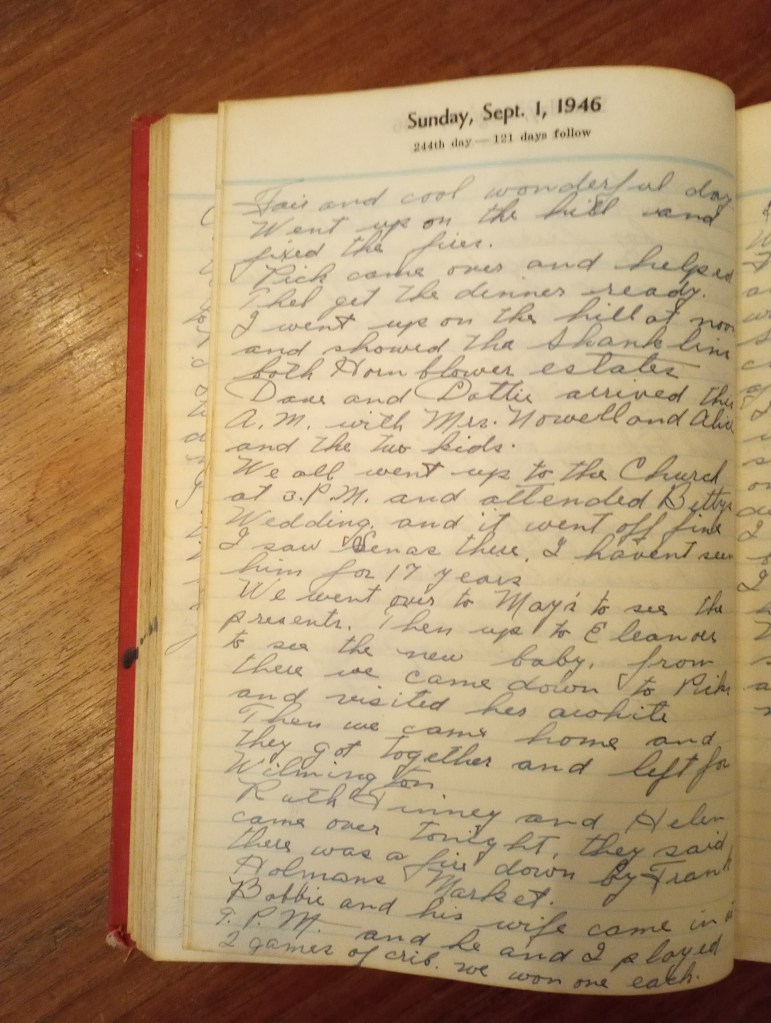 Sunday, Sept. 1, 1946
244th day — 121 days follow
Fair and cool wonderful day
Went up on the hill and
fixed the fires.
Pick came over and helped
Thel get the dinner ready.
I went up on the hill at noon
and showed the Shanklins
both Hornblower estates
Dave and Dottie arrived this
A.M. with Mrs. Nowell and Alice
and the two kids.
We all went up to the Church
at 3.P.M. and attended Bettys
Wedding, and it went off fine
I saw there, I havent seen
him for 17 years
We went over to May's to see the
presents. Then up to Eleanors
to see the new baby, from
there we came down to
and visited her awhile
Then we came home and
they got together and left for
Wilmington
Ruth Tinney and Helen
came over tonight, they said
there was a fire down by Frank
Holmans Market.
Bobbie and his wife came in at
9.P.M. and he and I played
2 games of crib. we won one each.